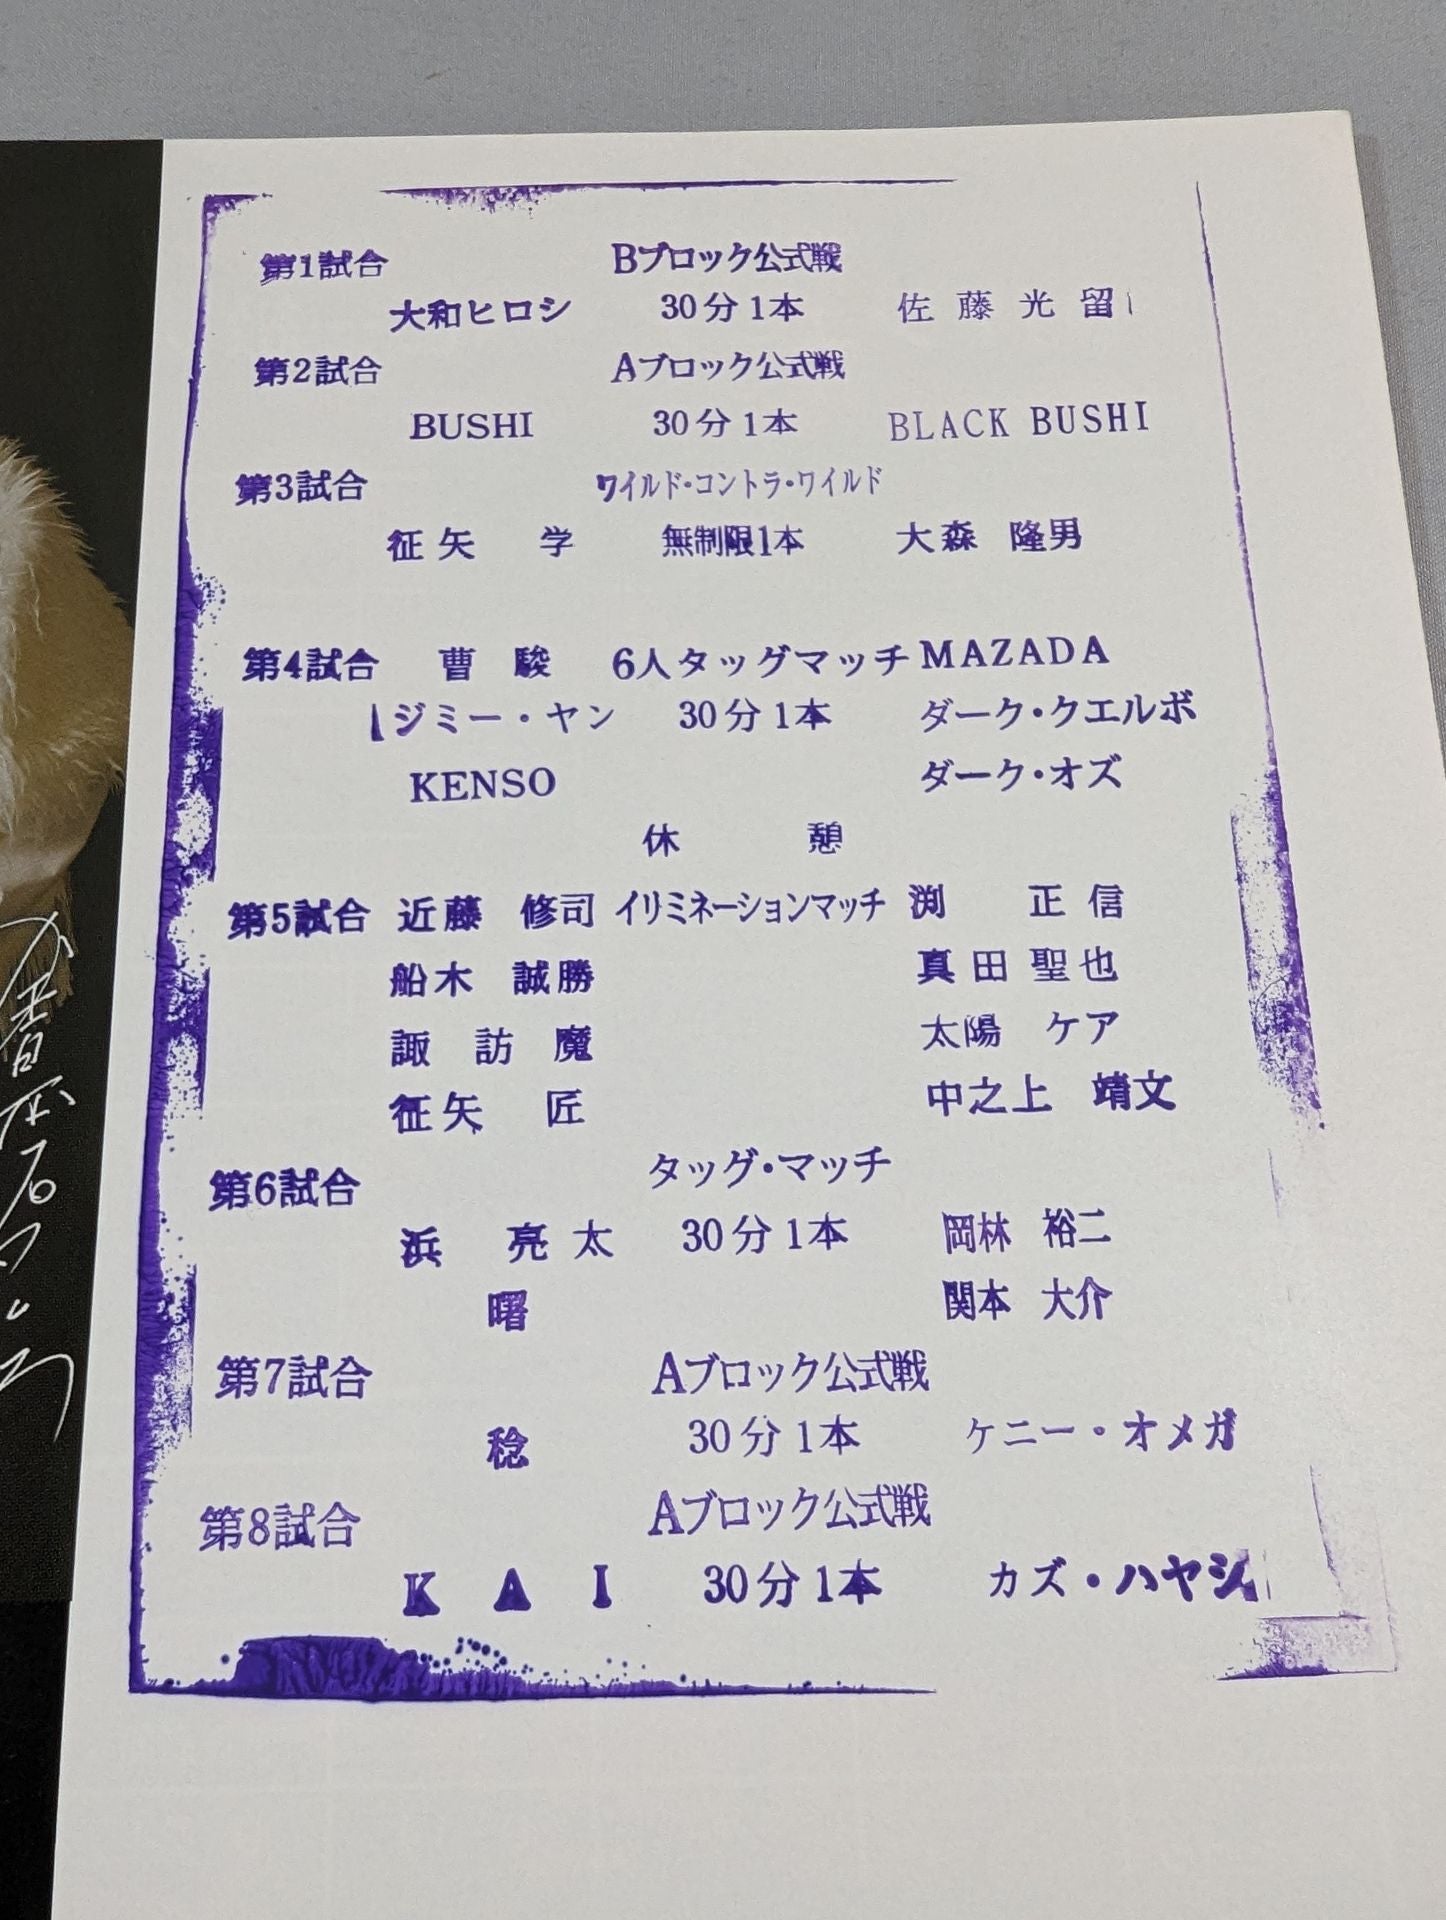 第1試合 Bブロック公式戦
大和ヒロシ 30分1本 佐藤光留
第2試合 Aブロック公式戦
BUSHI 30分1本 BLACK BUSHI
第3試合 ワイルド・コントラ・ワイルド
征矢 学 無制限1本 大森 隆男
第4試合 曹 駿 6人タッグマッチ MAZADA
ジミー・ヤン 30分1本 ダーク・クエルボ
KENSO ダーク・オズ
休 憩
第5試合 近藤 修司 イリミネーションマッチ 渕 正信
船木 誠勝 真田聖也
諏訪魔 太陽 ケア
征矢 匠 中之上 靖文
第6試合 タッグ・マッチ
浜 亮太 30分1本 岡林 裕二
曙 関本 大介
第7試合 Aブロック公式戦
稔 30分1本 ケニー・オメガ
第8試合 Aブロック公式戦
KAI 30分1本 カズ・ハヤシ